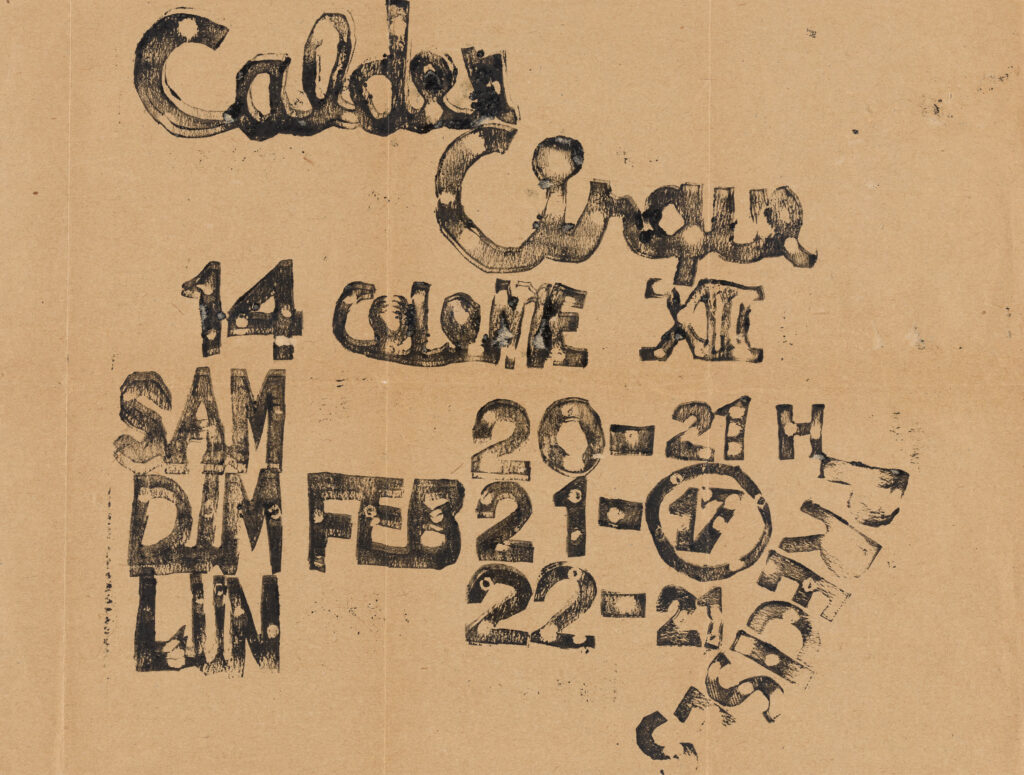 Calder
Cirque
14 COLOMBE XIII
SAM 20-21 H
DIM FEB 21-17
LUN 22-21